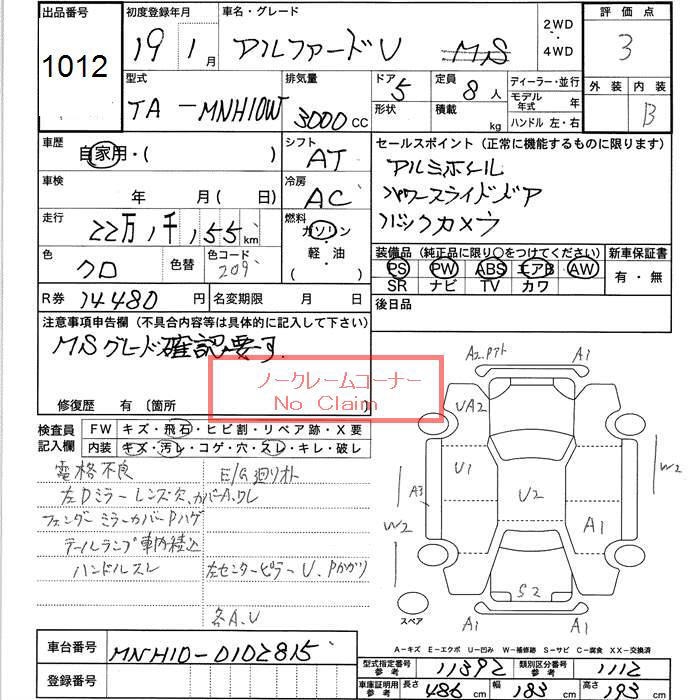 出品番号 初度登録年月 車名・グレード 2WD・4WD 評価点
1012 19 1月 アルファードV MS 3
型式 排気量 ドア 5 定員 8人 ディーラー・並行 外装 内装
TA-MNH10W 3000cc 形状 積載 kg モデル年式 年 B
ハンドル 左・右
車歴 自家用・( ) シフト AT セールスポイント (正常に機能するものに限ります)
アルミホイル
車検 年 月( 日) 冷房 AC パワースライドドア
走行 22万1千155km 燃料 ガソリン・軽油( ) バックカメラ
色 クロ 色替 色コード 209 装備品 (純正品に限り○をつけてください) 新車保証書
PS PW ABS エアB AW 有・無
SR ナビ TV カワ
R券 14480円 名変期限 月 日 後日品
注意事項申告欄 (不具合内容等は具体的に記入して下さい)
MSグレード確認要す
ノークレームコーナー
No Claim
修復歴 有 〔箇所
検査員記入欄 FW キズ・飛石・ヒビ割・リペア跡・X要
内装 キズ・汚レ・コゲ・穴・スレ・キレ・破レ
電格不良 E/G廻りオト
左Dミラーレンズ欠、カバーA、ワレ
フェンダーミラーカバーPハゲ
テールランプ車内積込
ハンドルスレ 左センターピラーU、Pカガリ
各A、U
A2、Pアト A1
UA2
U1 U2 W2
A3
W2 A1
S2
A1 A1
スペア
A-キズ E-エクボ U-凹み W-補修跡 S-サビ C-腐食 XX-交換済
車台番号 MNH10-0102815
登録番号
型式指定番号 参考 11392 類別区分番号 参考 1112
車庫証明用 参考 長さ 486cm 幅 183cm 高さ 193cm